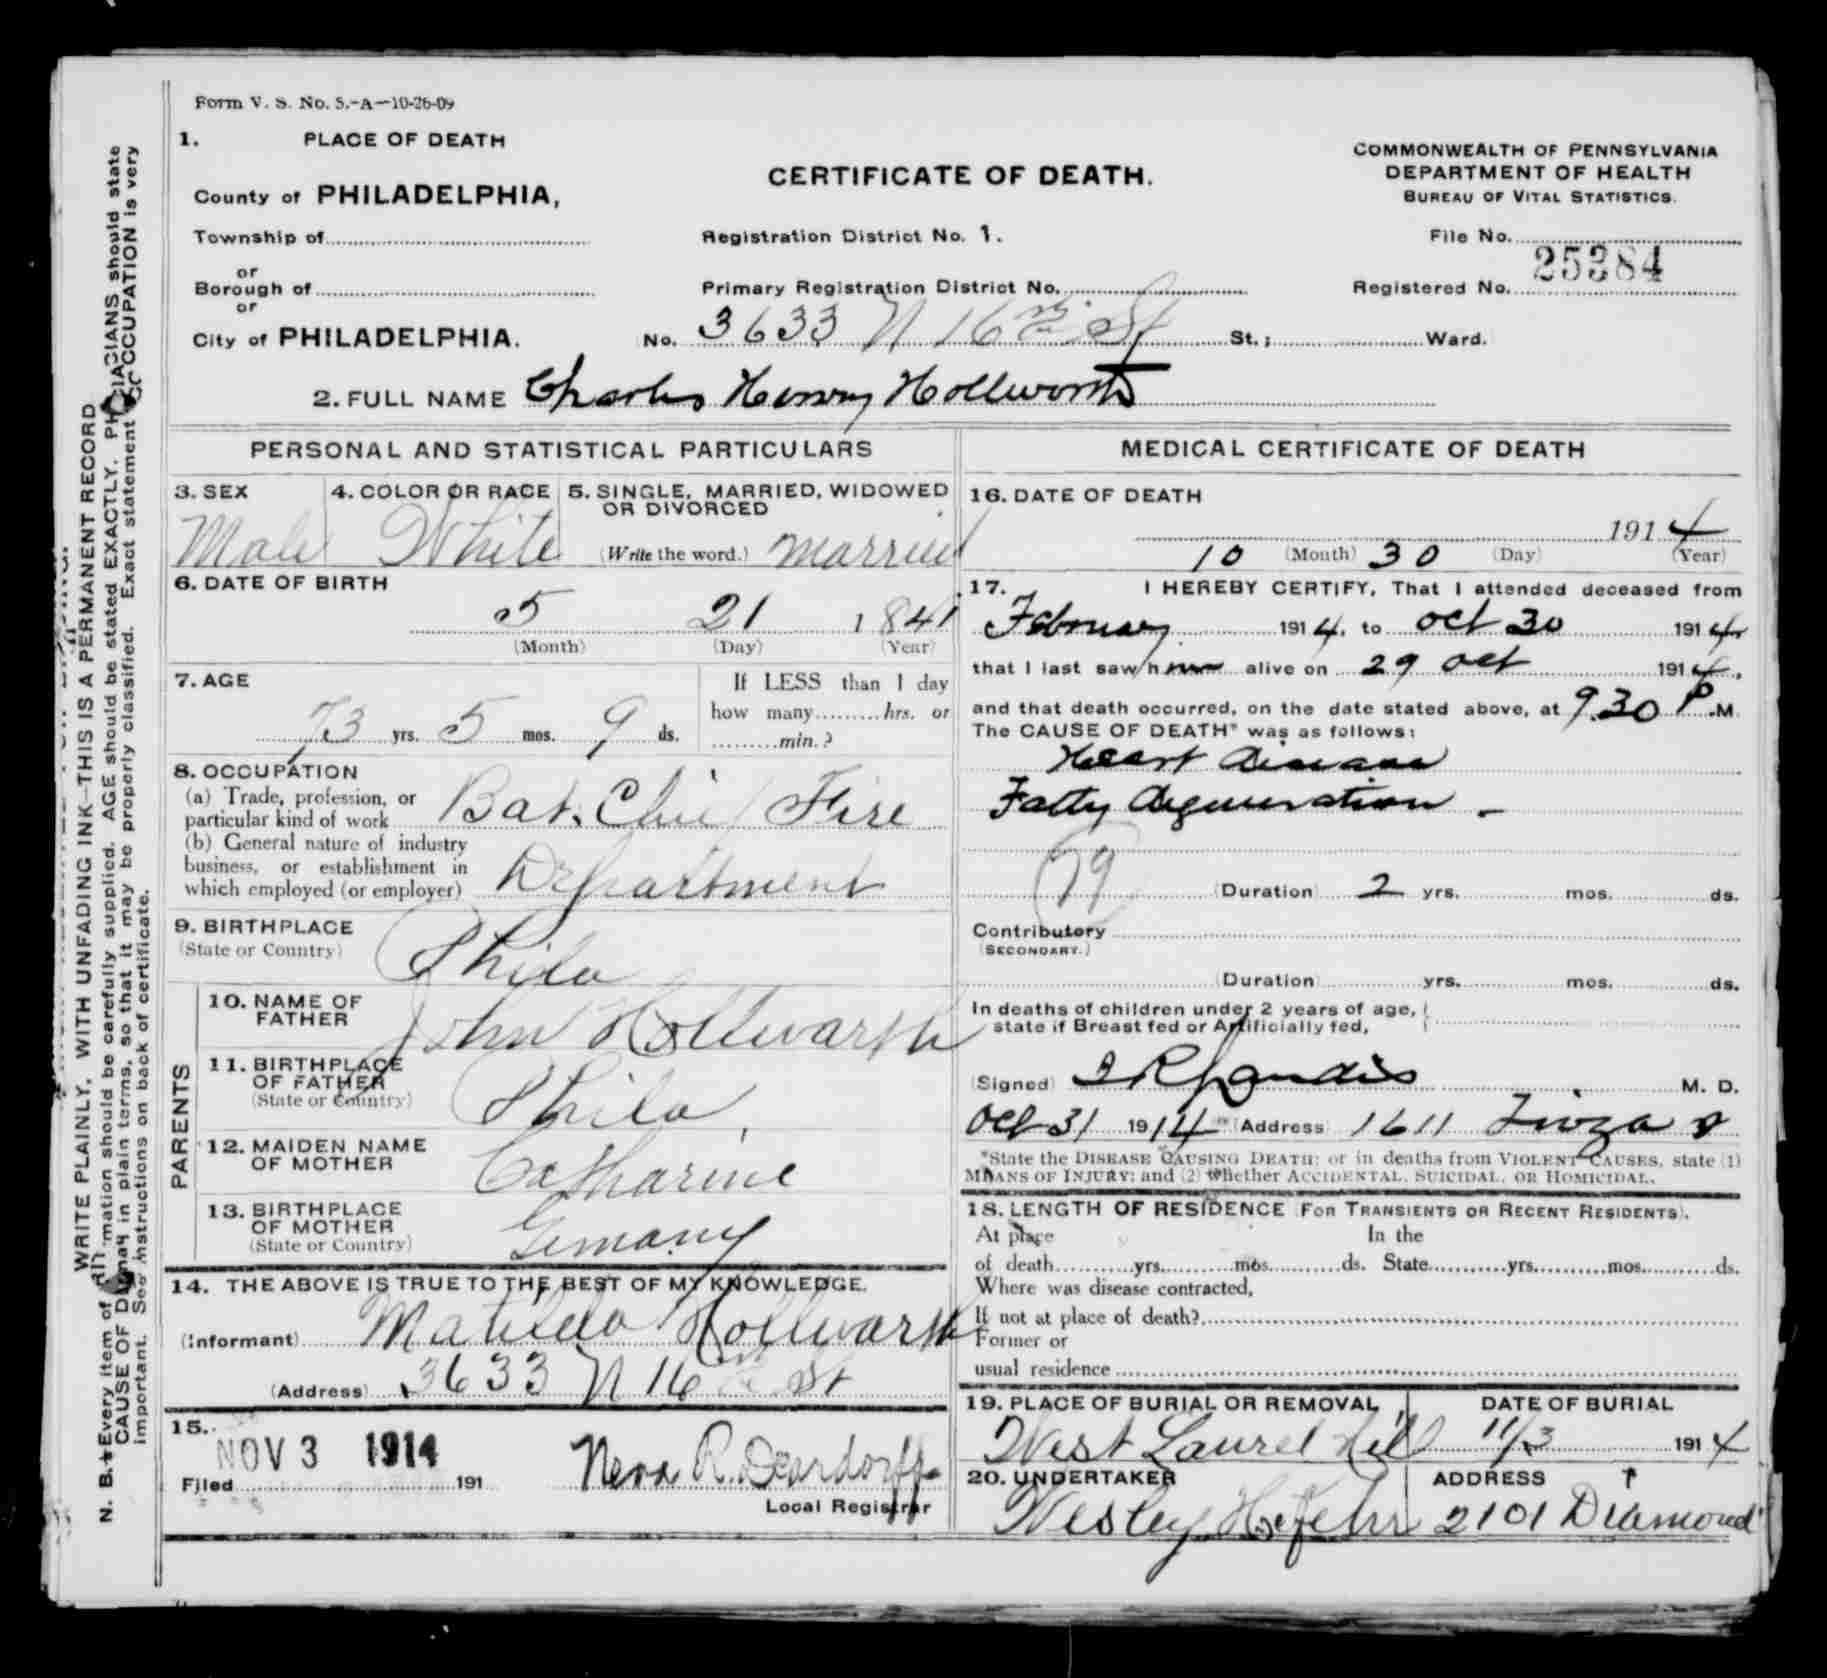 Form V. S. No. 5.-A-10-26-09
1. PLACE OF DEATH
County of PHILADELPHIA,
Township of
or
Borough of
or
City of PHILADELPHIA.
CERTIFICATE OF DEATH.
Registration District No. 1.
Primary Registration District No.
No. 3633 N 16th St St.; Ward.
COMMONWEALTH OF PENNSYLVANIA
DEPARTMENT OF HEALTH
BUREAU OF VITAL STATISTICS.
File No.
Registered No. 25384
2. FULL NAME Charles Henry Hollworth
PERSONAL AND STATISTICAL PARTICULARS
3. SEX
Male
4. COLOR OR RACE
White
5. SINGLE, MARRIED, WIDOWED
OR DIVORCED
(Write the word.) married
6. DATE OF BIRTH
5 21 1841
(Month) (Day) (Year)
7. AGE
73 yrs. 5 mos. 9 ds.
If LESS than 1 day
how many hrs. or
min.?
8. OCCUPATION
(a) Trade, profession, or
particular kind of work Bat. Chief Fire
(b) General nature of industry
business, or establishment in
which employed (or employer) Department
9. BIRTHPLACE
(State or Country) Phila
PARENTS
10. NAME OF
FATHER John Hollwarth
11. BIRTHPLACE
OF FATHER
(State or Country) Phila,
12. MAIDEN NAME
OF MOTHER Catharine
13. BIRTHPLACE
OF MOTHER
(State or Country) Germany
14. THE ABOVE IS TRUE TO THE BEST OF MY KNOWLEDGE.
(Informant) Matilda Hollwarth
(Address) 3633 N 16th St
15.
Filed NOV 3 1914 191
Neva R. Deardorff
Local Registrar
MEDICAL CERTIFICATE OF DEATH
16. DATE OF DEATH
1914
10 (Month) 30 (Day) (Year)
17. I HEREBY CERTIFY, That I attended deceased from
February 1914, to Oct 30 1914
that I last saw him alive on 29 Oct 1914,
and that death occurred, on the date stated above, at 9.30 P.M.
The CAUSE OF DEATH* was as follows:
Heart Disease
Fatty Degeneration -
79
(Duration) 2 yrs. mos. ds.
Contributory
(SECONDARY.)
(Duration) yrs. mos. ds.
In deaths of children under 2 years of age,
state if Breast fed or Artificially fed,
(Signed) M. D.
Oct 31 1914 (Address) 1611 Tioga St
*State the DISEASE CAUSING DEATH; or in deaths from VIOLENT CAUSES, state (1)
MEANS OF INJURY; and (2) whether ACCIDENTAL, SUICIDAL, OR HOMICIDAL.
18. LENGTH OF RESIDENCE (FOR TRANSIENTS OR RECENT RESIDENTS).
At place In the
of death yrs. mos. ds. State yrs. mos. ds.
Where was disease contracted,
If not at place of death?
Former or
usual residence
19. PLACE OF BURIAL OR REMOVAL
West Laurel Hill
DATE OF BURIAL
11/3 1914
20. UNDERTAKER
Wesley
ADDRESS
2101 Diamond
WRITE PLAINLY, WITH UNFADING INK-THIS IS A PERMANENT RECORD
N. B.-Every item of information should be carefully supplied. AGE should be stated EXACTLY. PHYSICIANS should state
CAUSE OF DEATH in plain terms, so that it may be properly classified. Exact statement of OCCUPATION is very
important. See instructions on back of certificate.